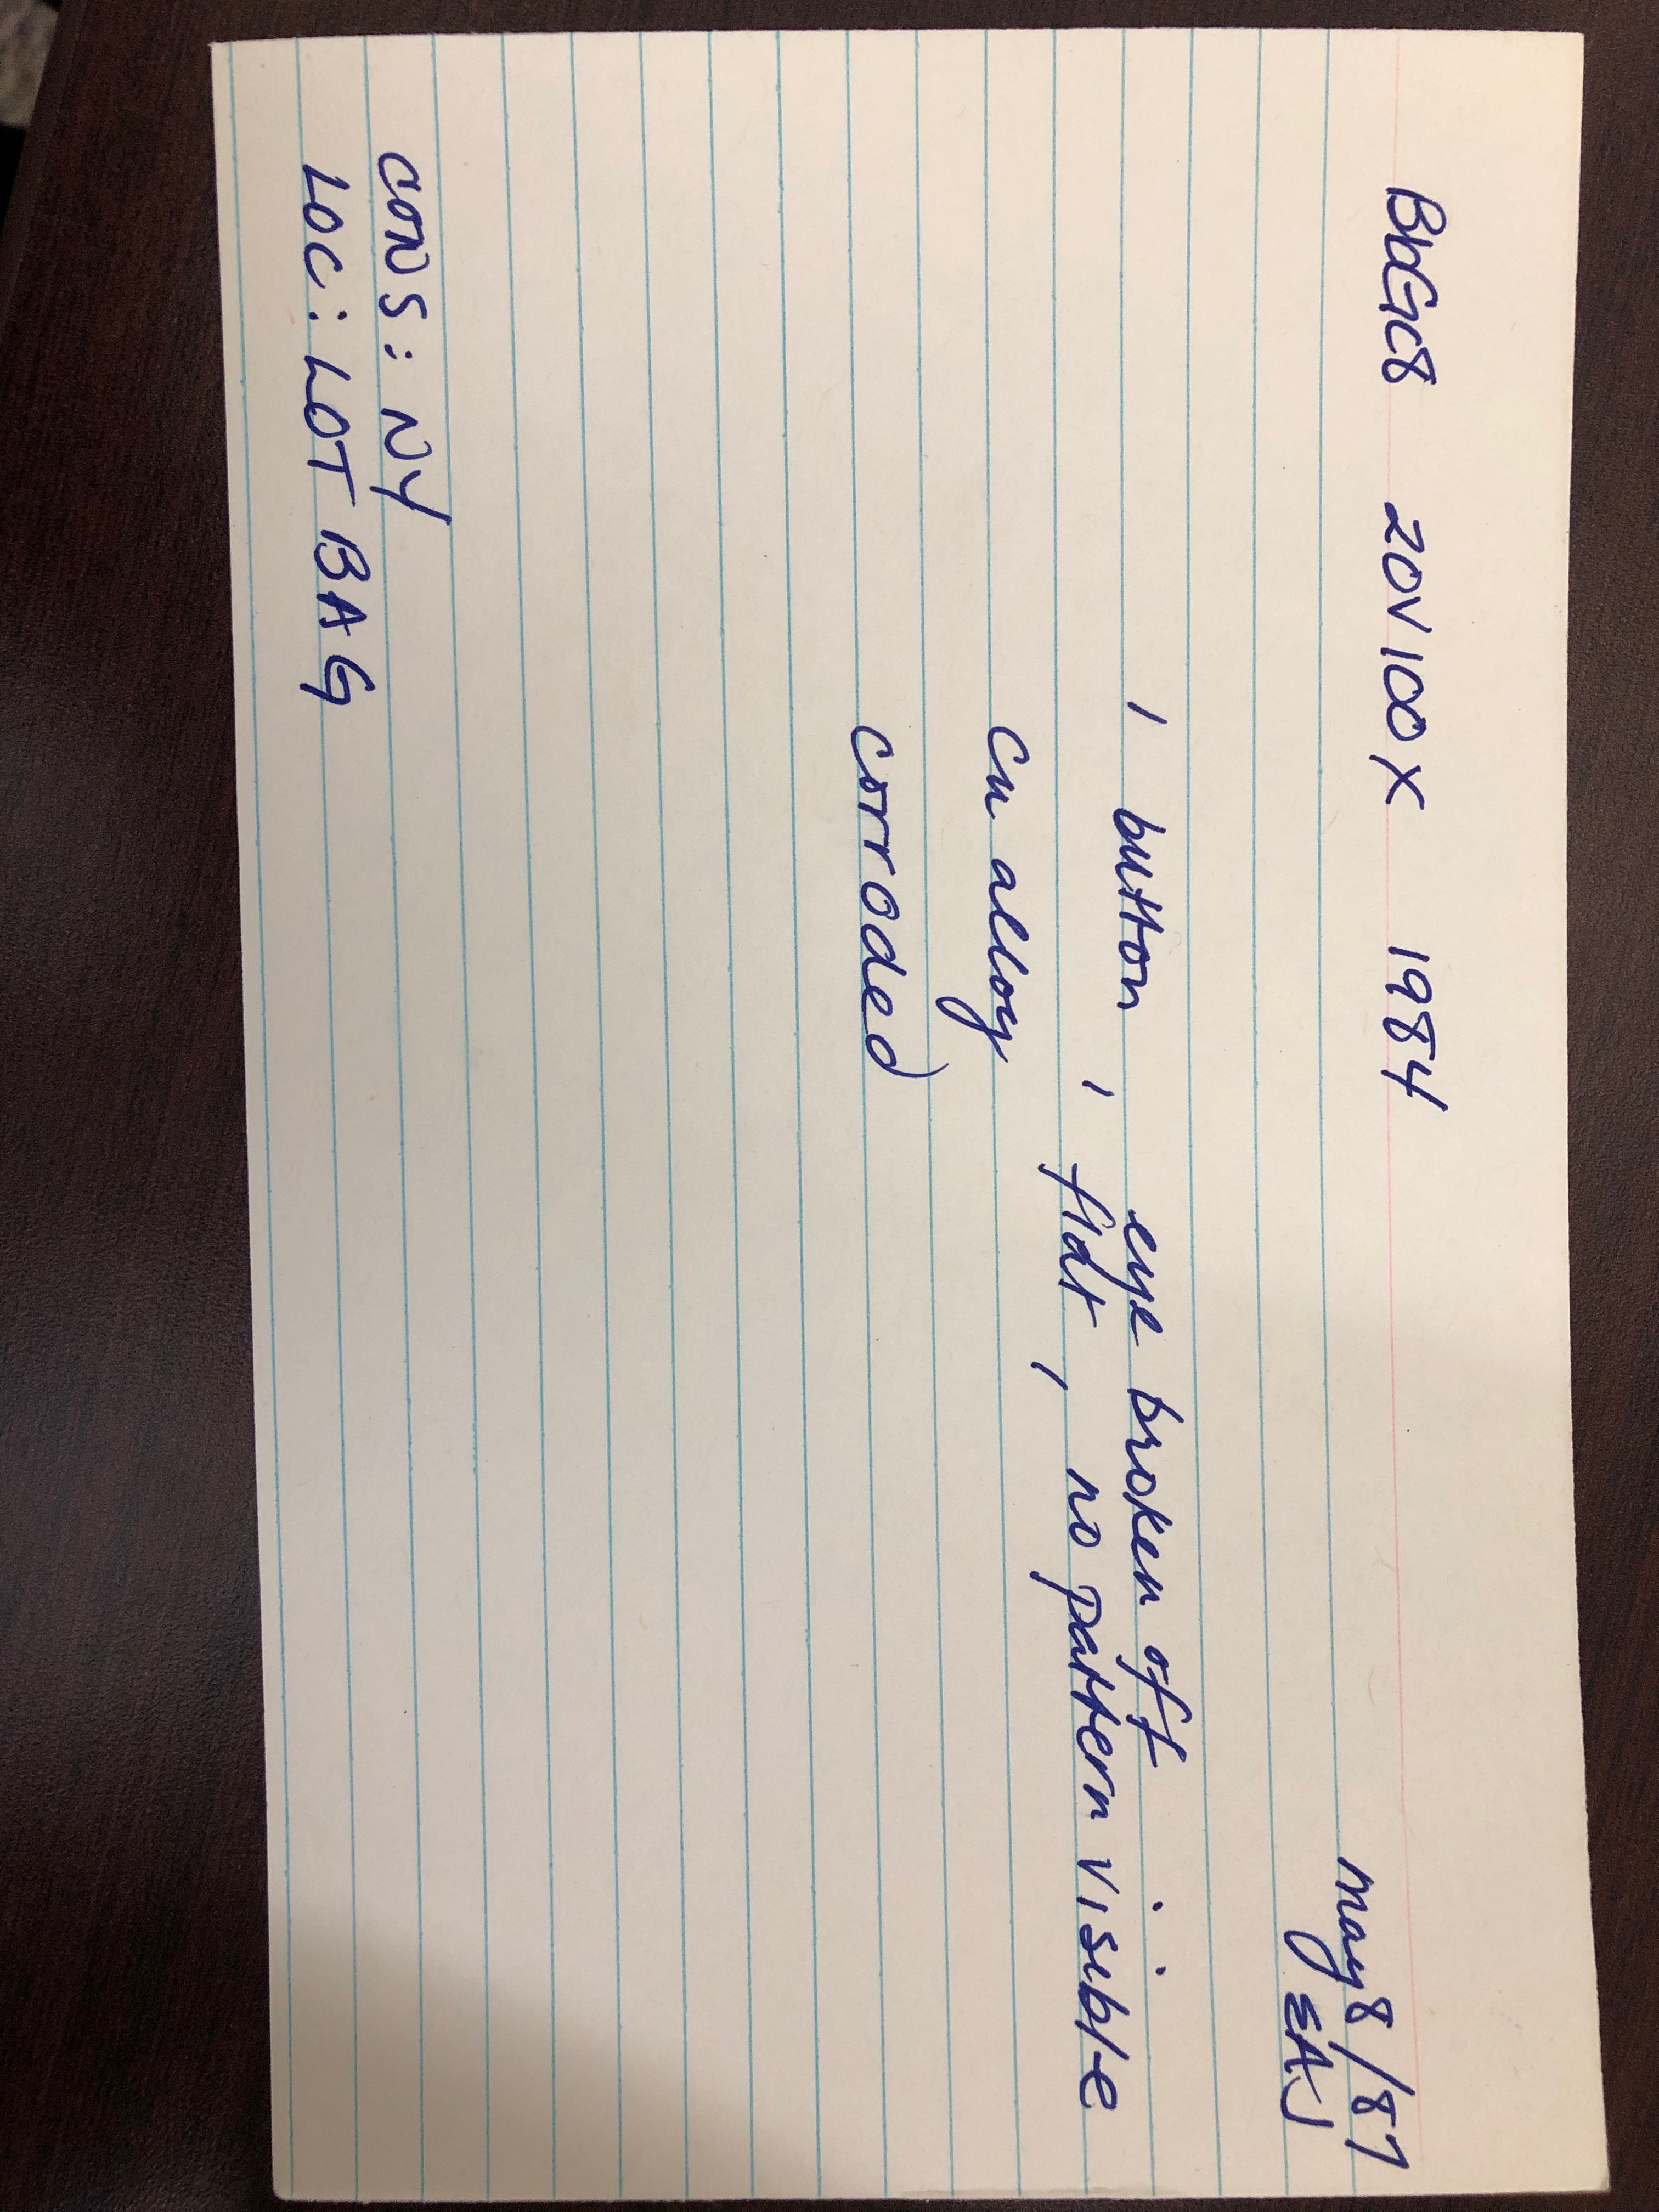 BbGc8 20V100X 1984
May 8/87
EAJ
1 button, eye broken off
flat, no pattern visible
Cu alloy
corroded
CONS: NY
LOC: LOT BAG